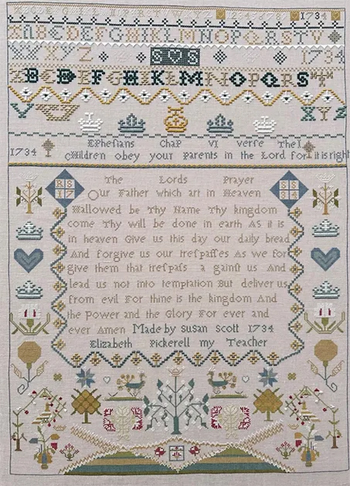 1734
ABCDEFGHIJKLMNOPQRSTV
XYZ S S 1734
BCEFGHIKLMNOPQRS
XYZ
Ephesians Chap VI verse The1
1734 Children obey your parents in the Lord for it is right
The Lords Prayer
SS 17
Our Father which art in Heaven
Hallowed be Thy Name Thy kingdom
come Thy will be done in earth As it is
in heaven Give us this day our daily bread
And forgive us our trefpaffes As we for
give them that trefpafs a gainst us And
lead us not into temptation But deliver us
from evil For thine is the kingdom And
the Power and the Glory For ever and
ever Amen Made by Susan Scott 1734
Elizabeth Pickerell my Teacher